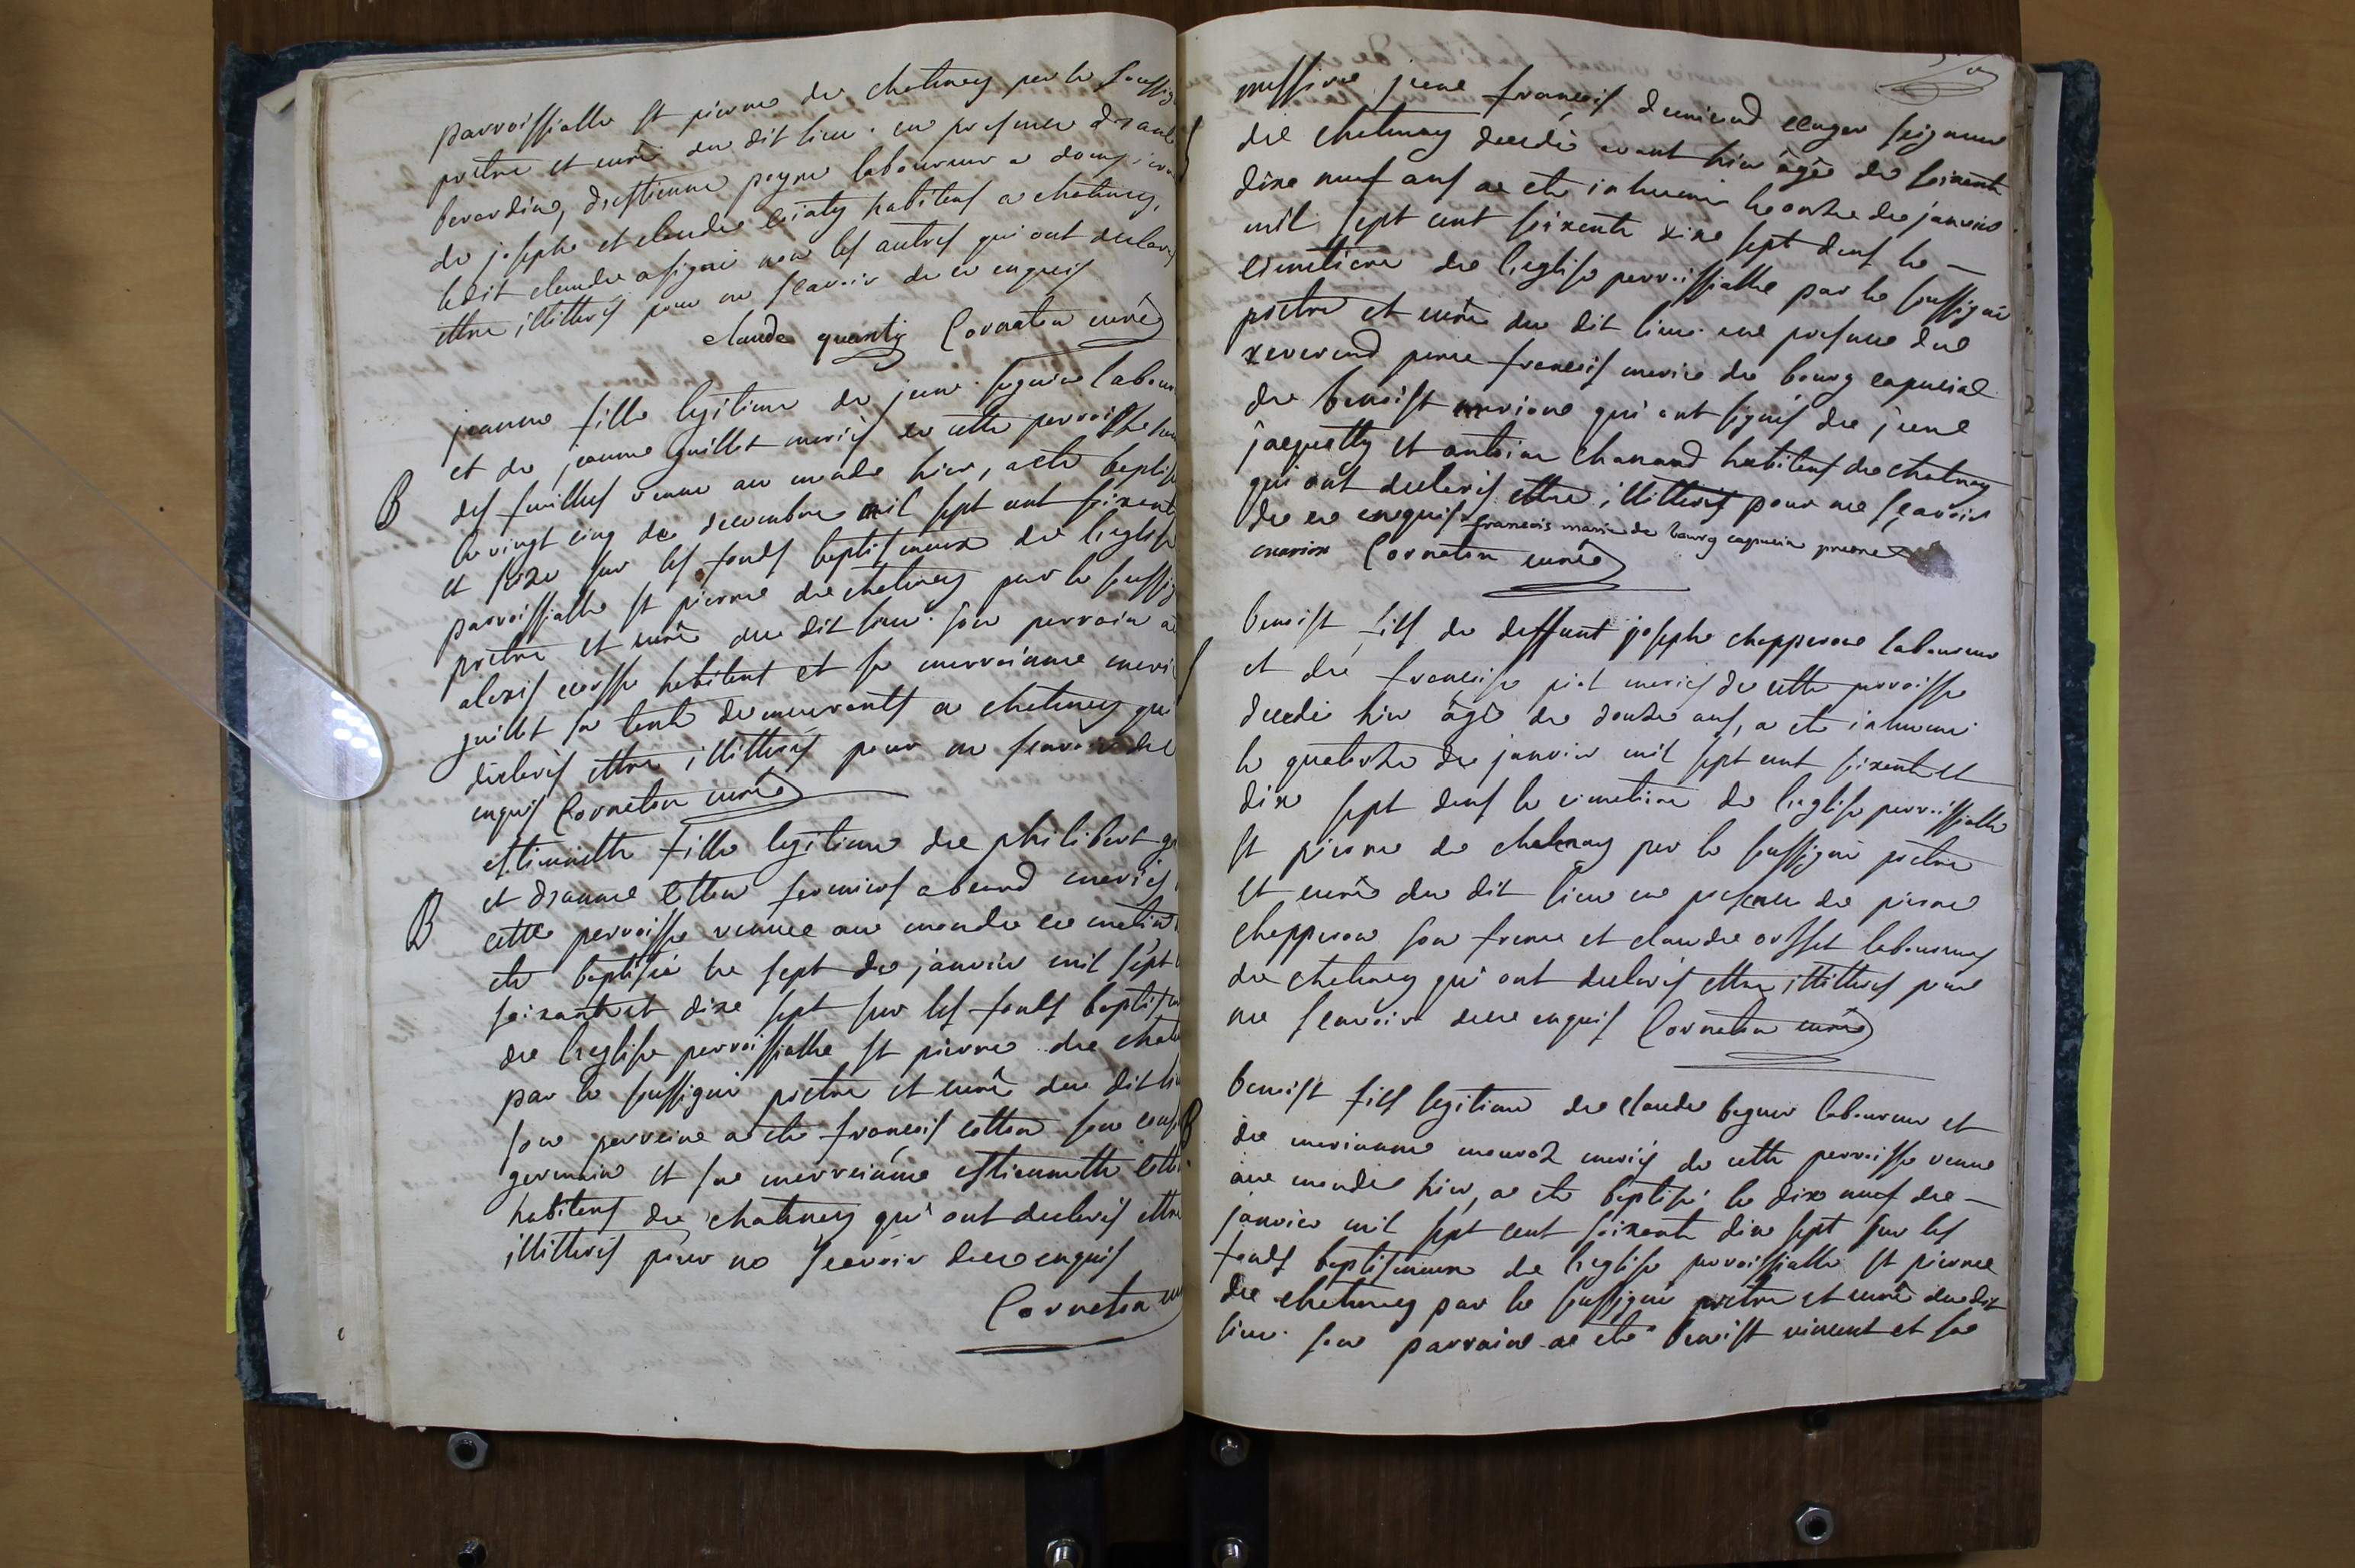 parroissialle st pierre de chatenay par le soussig
prêtre et curé du dit lieu. en presence
laboureur a
de joseph et claude habitens a chatenay,
ledit claude a signé non les autres qui ont declaré
ettre illitteres pour ne scavoir de ce enquis
claude Cornaton curé
jeanne fille legitime de jean laboure
et de jeanne guillet mariés en cette parroisse
des feuilles venue au monde hier, a eté baptisé
B
le vingt cinq de decembre mil sept cent soixante
et seize sur les fonds baptismeaux de l'eglise
parroissialle st pierre de chatenay par le soussig
prêtre et curé du dit lieu. son parrain a
alexis habitant et sa marrainne mari
guillet sa tente demeurants a chatenay qui
declarés ettre illitterés pour ne scavoir de
enquis Cornaton curé
estiennette fille legitime de philibert
et d'anne cotton fermiers mariés
B
cette parroisse venue au monde ce matin
eté baptisée le sept de janvier mil sept
soixante et dixe sept sur les fonds baptism
de l'eglise parroissialle st pierre de chate
par le soussigné prêtre et curé du dit li
son parrein a eté francois cotton son cous
germain et sa marreinne estiennette cotto
habitens de chatenay qui ont declarés ettre
illitterés pour ne scavoir de ce enquis
Cornaton cu
messire jean francois seigneur
de chatenay decedé avant hier âgé de soixante
dixe neuf ans a eté inhumé le onze de janvier
mil sept cent soixente dixe sept dans le
cimetiere de l'eglise parroissialle par le soussigné
prêtre et curé du dit lieu. en presence du
reverend pere francois marie de bourg capucin
de benoist marion qui ont signés de jean
jacquetty et antoine chanard habitens de chatenay
qui ont declarés ettre illitterés pour ne scavoir
de ce enquis francois marie de bourg capucin
marion Cornaton curé
benoist fils de deffunt joseph chapperon laboureur
et de francoise piat mariés de cette parroisse
decedé hier âgé de douze ans, a eté inhumé
le quatorze de janvier mil sept cent soixente et
dixe sept dans le cimetiere de l'eglise parroissialle
st pierre de chatenay par le soussigné prêtre
et curé du dit lieu en presence de pierre
chapperon son frere et claude orsset laboureurs
de chatenay qui ont declarés ettre illitterés pour
ne scavoir de ce enquis Cornaton curé
benoist fils legitime de claude laboureur et
B
de marianne mariés de cette parroisse venu
au monde hier, a eté baptisé le dixe neuf de
janvier mil sept cent soixente dixe sept sur les
fonds baptismeaux de l'eglise parroissialle st pierre
de chatenay par le soussigné prêtre et curé du dit
lieu. son parrain a eté benoist vincent et sa